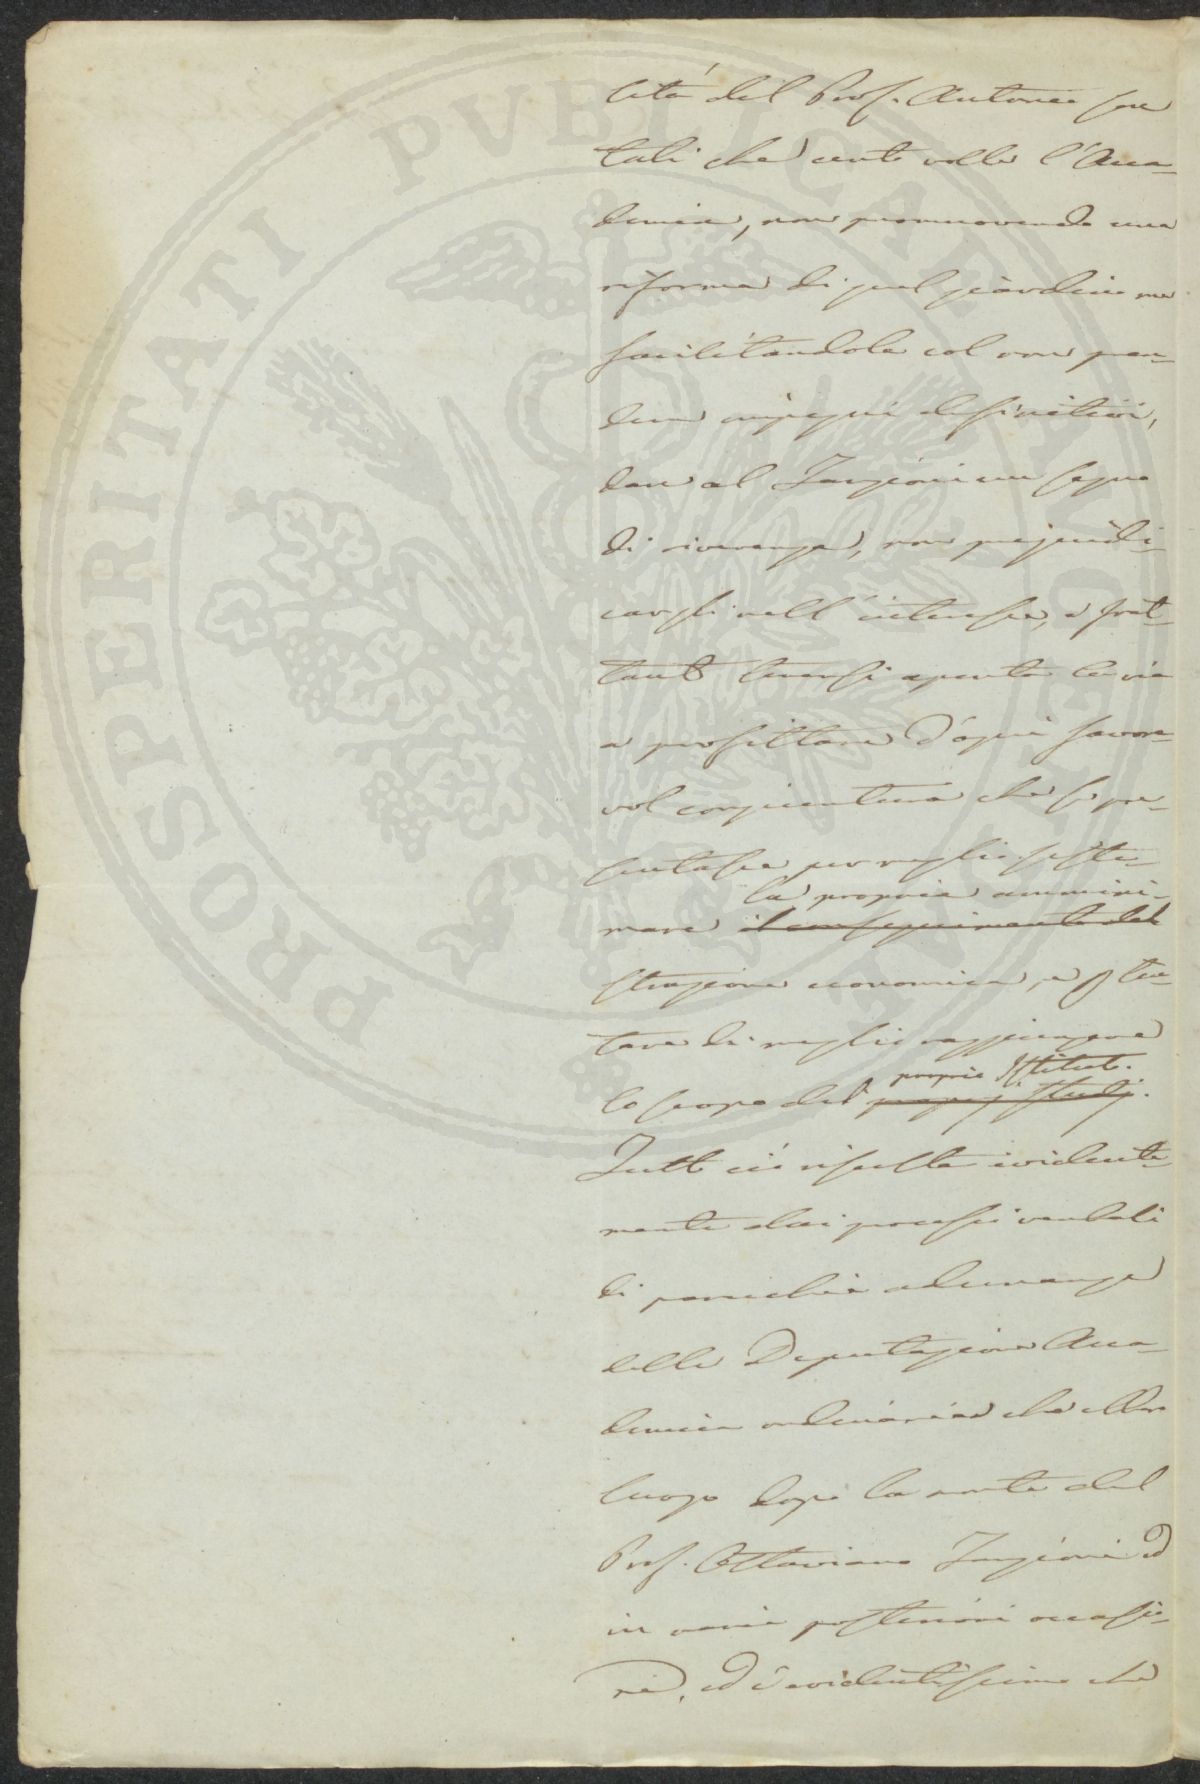 PROSPERITATI PVBLICAE AVGENDAE
lità del Prof. Antonio fu
tali che certo volle l'Acca-
demia, non promuovendo una
riforma di quel giardino ma
facilitandola col non pren-
dere impegni definitivi,
dare al Targioni un segno
di riverenza, non pregiudi-
cargli nell'interesse, e frat-
tanto tenersi aperta la via
a profittare d'ogni favore-
vol congiuntura che si pre-
sentasse per meglio siste-
la propria ammini-
mare il conseguimento del
strazione economica, e p ten-
tare di meglio raggiungere
proprio Istituto.
lo scopo del proprj Studj.
Tutto ciò risulta evidente-
mente dai processi verbali
di parecchie adunanze
della Deputazione Acca-
demica ordinaria che ebbero
luogo dopo la morte del
Prof. Ottaviano Targioni ed
in varie posteriori occasio-
ni, ed è evidentissimo che